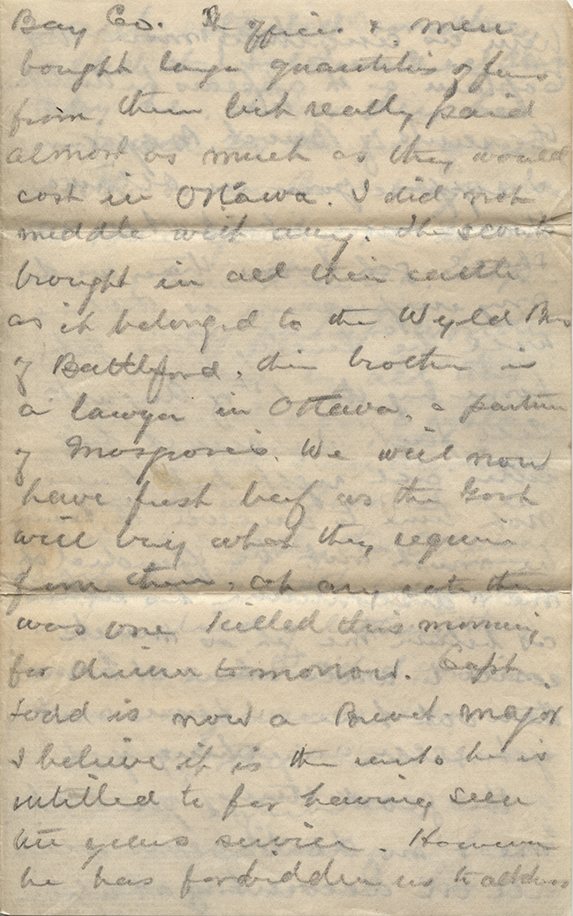 Bay Co. The officers & men
bought large quantities of furs
from them but really paid
almost as much as they would
cost in Ottawa. I did not
middle with any. The scouts
brought in all their cattle
as it belonged to the Wyld Bros
of Battleford, their brother is
a lawyer in Ottawa, a partner
of Mosgrove's. We will now
have fresh beef as the Govt
will buy what they require
from them, at any rate there
was one killed this morning
for dinner tomorrow. Capt.
Todd is now a Brevet Major
I believe it is the rank he is
intitled to for having seen
ten years service. However
he has forbidden us to address